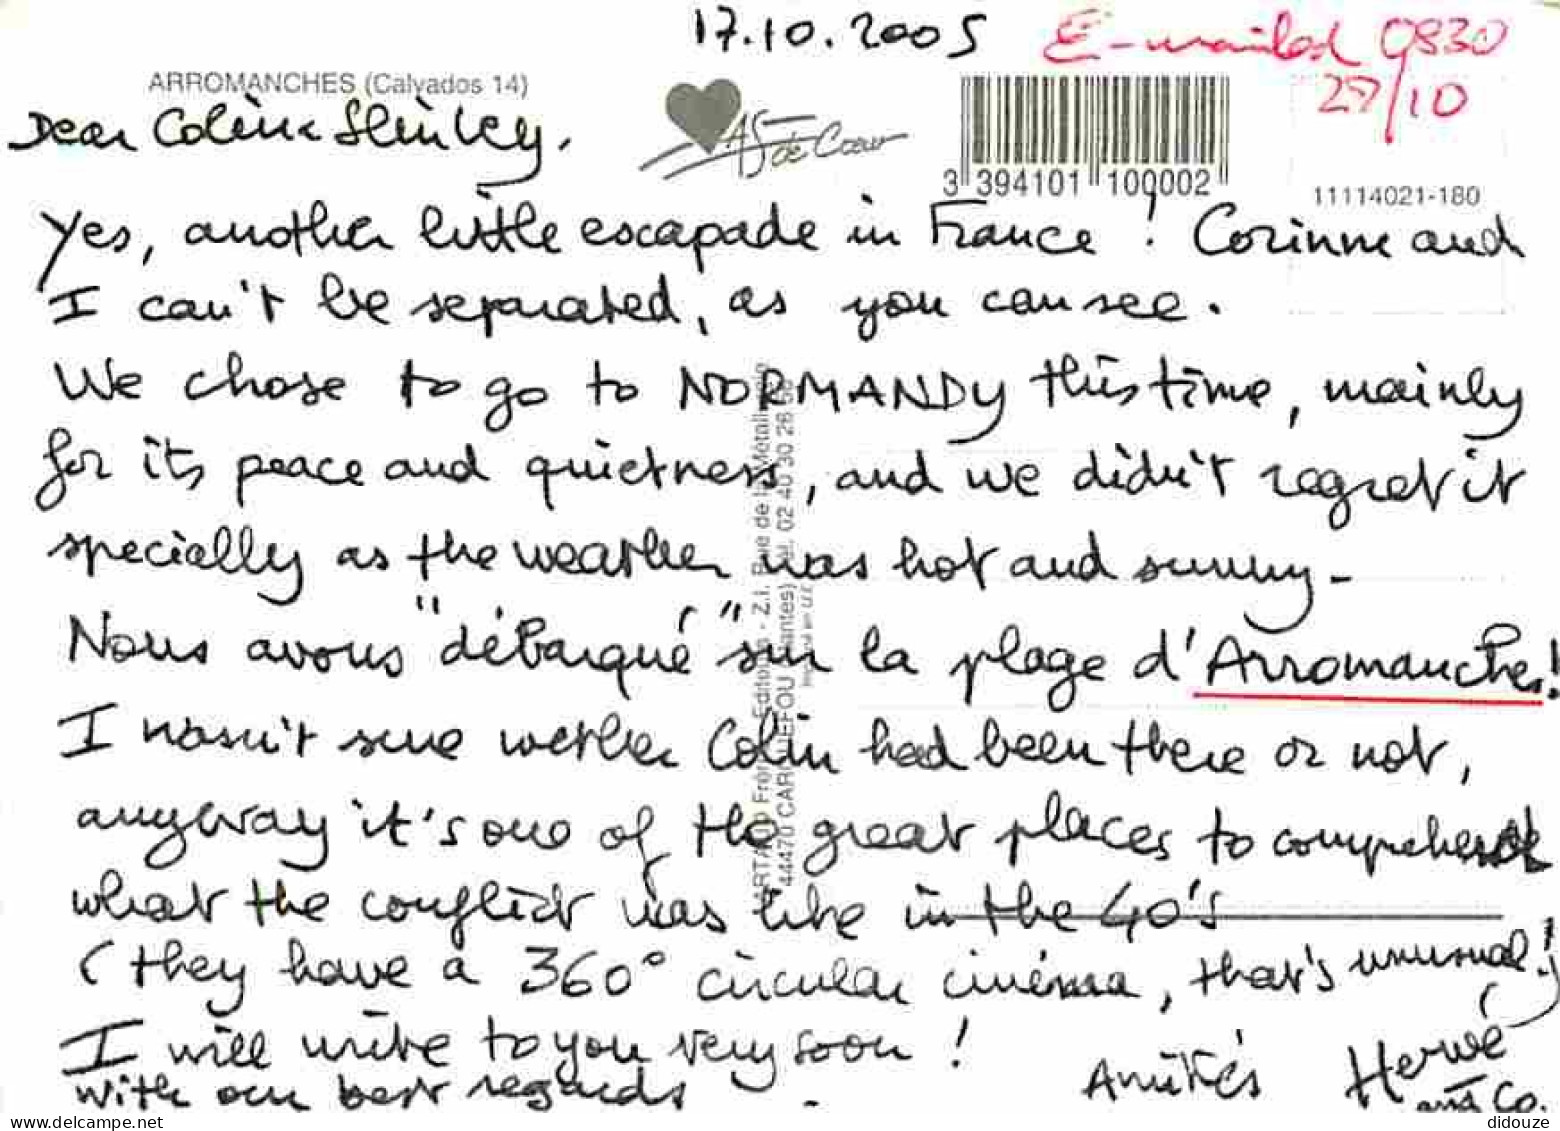 17.10.2005
E-mailed 0930
27/10
ARROMANCHES (Calvados 14)
AS de Cœur
3 394101 100002
11114021-180
Dear Colin & Shirley,
Yes, another little escapade in France ! Corinne and
I can't be separated, as you can see.
We chose to go to NORMANDY this time, mainly
for its peace and quietness, and we didn't regret it
specially as the weather was hot and sunny-
Nous avons "débarqué" sur la plage d'Arromanches!
I wasn't sure wether Colin had been there or not,
anyway it's one of the great places to comprehend
what the conflict was like in the 40's
(they have a 360° circular cinéma, that's unusual!)
I will write to you very soon !
with our best regards.
Amitiés
Hervé
and Co.
Frères Editions - Z.I. Rue de la
44470 CARQUEFOU (Nantes) Tél. 02 40 30 26
www.delcampe.net
didouze